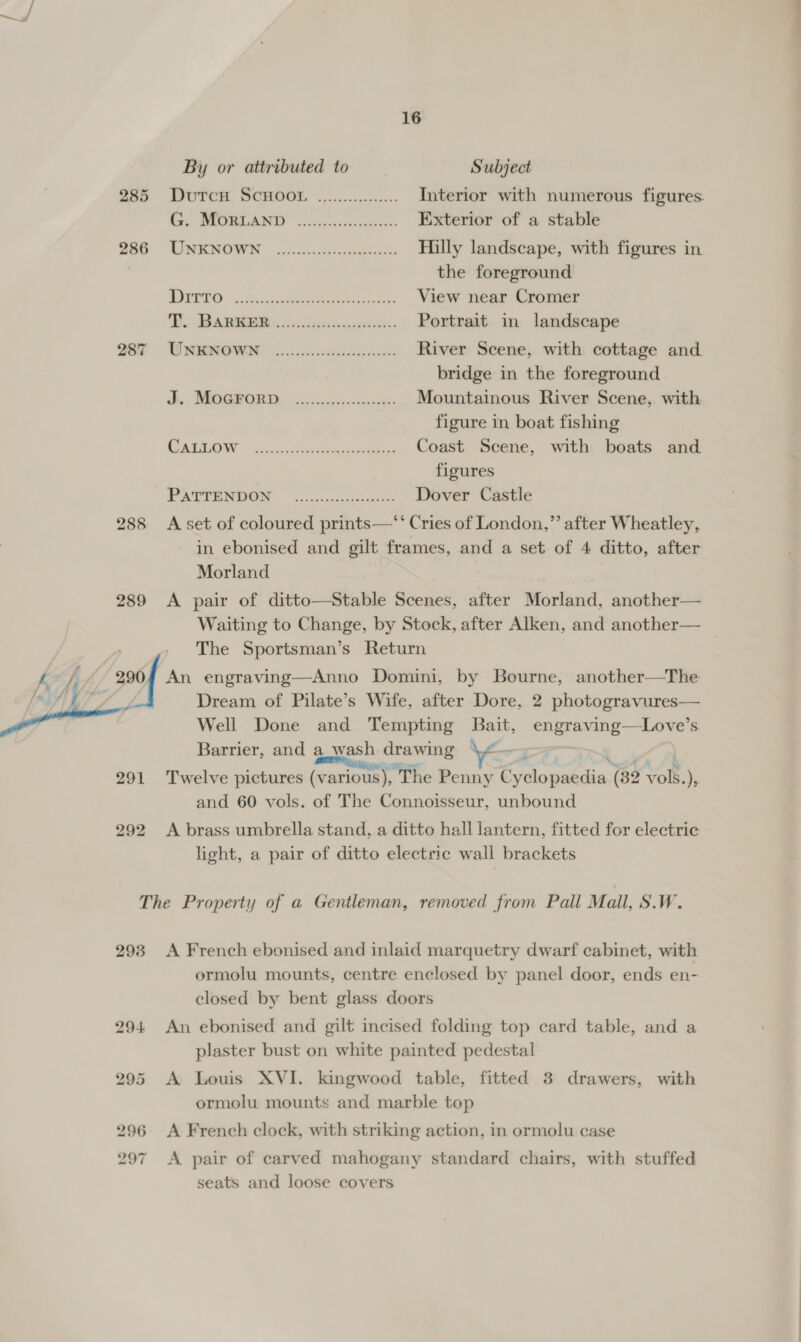 16
By or attributed to Subject
285 DUTCH SCHOOL ............... Interior with numerous figures.
G. MORLAND .................... Exterior of a stable
286 UNKNOWN ........................ Hilly landscape, with figures in
the foreground
DITTO ................................ View near Cromer
T. BARKER ........................ Portrait in landscape
287 UNKNOWN ........................ River Scene, with cottage and
bridge in the foreground
J. MOGFORD .................... Mountainous River Scene, with
figure in boat fishing
CALLOW ............................ Coast Scene, with boats and
figures
PATTENDON .................... Dover Castle
288 A set of coloured prints—“ Cries of London,” after Wheatley,
in ebonised and gilt frames, and a set of 4 ditto, after
Morland
289 A pair of ditto—Stable Scenes, after Morland, another—
Waiting to Change, by Stock, after Alken, and another—
The Sportsman’s Return
290 An engraving—Anno Domini, by Bourne, another—The
Dream of Pilate’s Wife, after Dore, 2 photogravures—
Well Done and Tempting Bait, engraving—Love’s
Barrier, and a wash drawing
291 Twelve pictures (various), The Penny Cyclopaedia (32 vols.),
and 60 vols. of The Connoisseur, unbound
292 A brass umbrella stand, a ditto hall lantern, fitted for electric
light, a pair of ditto electric wall brackets
The Property of a Gentleman, removed from Pall Mall, S.W.
293 A French ebonised and inlaid marquetry dwarf cabinet, with
ormolu mounts, centre enclosed by panel door, ends en-
closed by bent glass doors
294 An ebonised and gilt incised folding top card table, and a
plaster bust on white painted pedestal
295 A Louis XVI. kingwood table, fitted 3 drawers, with
ormolu mounts and marble top
296 A French clock, with striking action, in ormolu case
297 A pair of carved mahogany standard chairs, with stuffed
seats and loose covers